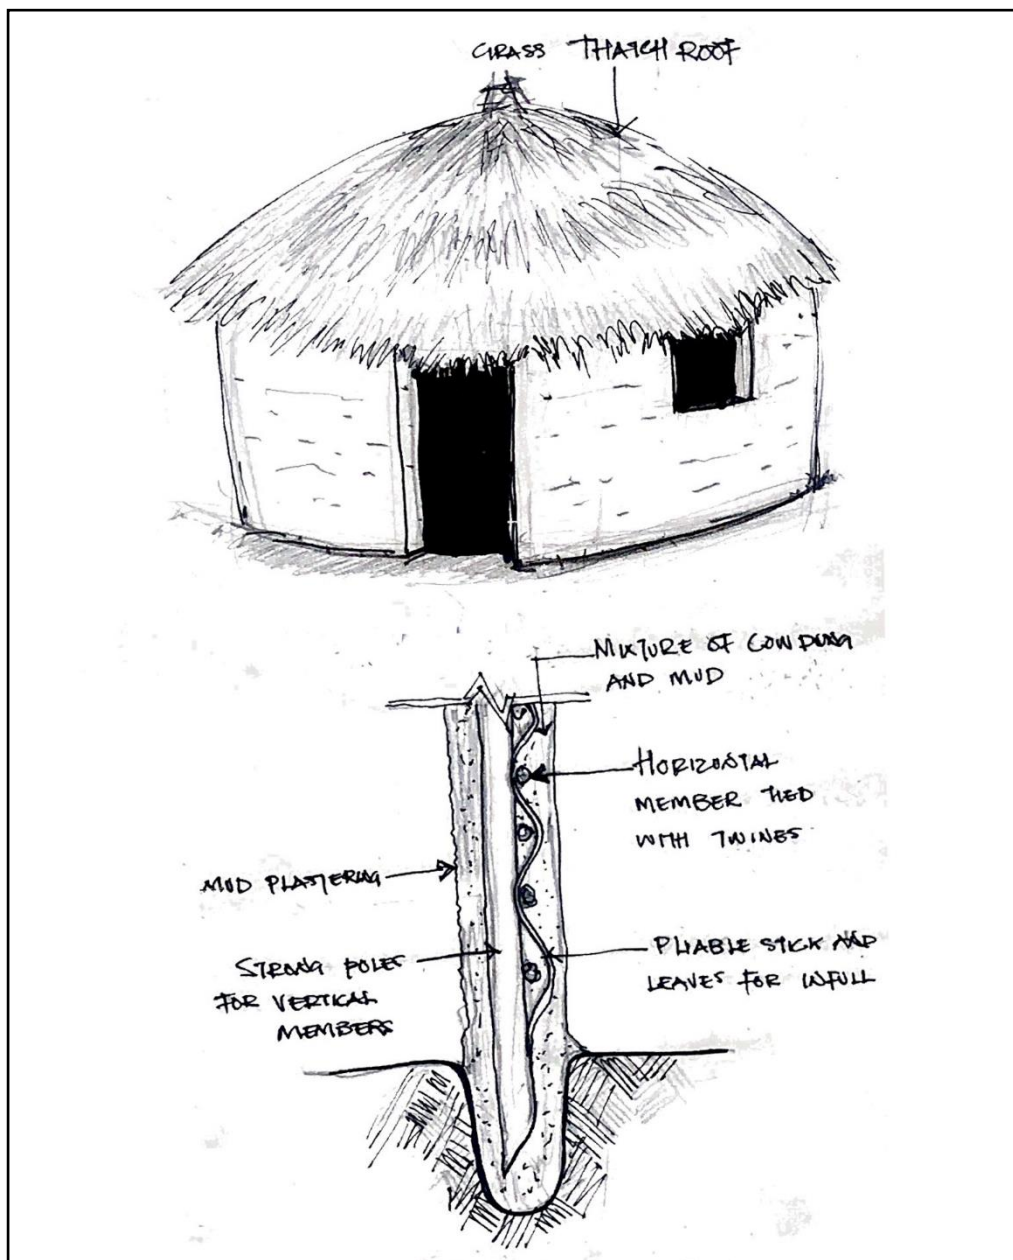 GRASS THATCH ROOF
MIXTURE OF COWDUNG
AND MUD
HORIZONTAL
MEMBER TIED
WITH TWINES
MUD PLASTERING
STRONG POLES
FOR VERTICAL
MEMBERS
PLIABLE STICK AND
LEAVES FOR INFULL